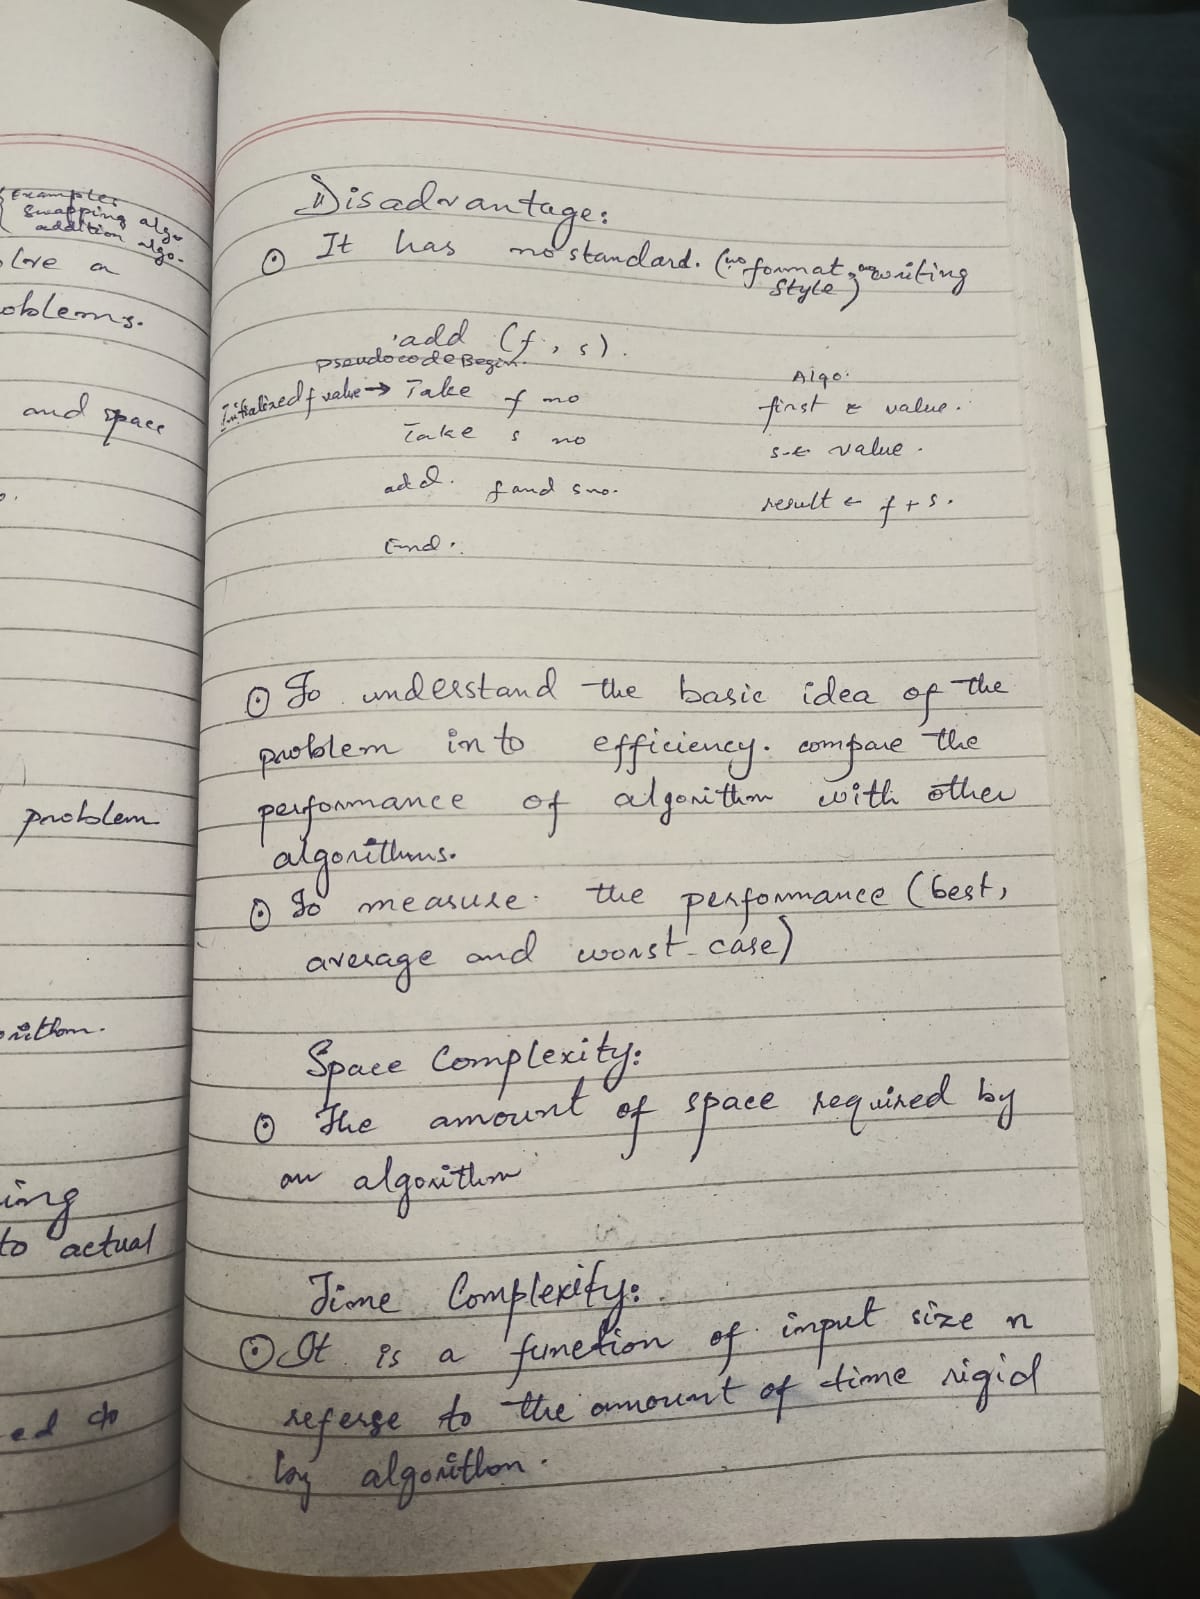 Examples
swapping algo
addition algo.
lore a
oblems.
and space
problem
orithm.
ing
to actual
ed to
Disadvantage:
⊙ It has no standard. (no format, no writing
style)
add (f, s).
pseudocode Begin.
Initialized f value → Take f no
Take s no
add. f and s no.
End.
Algo.
first ← value.
s ← value.
result ← f + s.
⊙ To understand the basic idea of the
problem in to efficiency. compare the
performance of algorithm with other
algorithms.
⊙ To measure. the performance (best,
average and worst case)
Space Complexity:
⊙ The amount of space required by
an algorithm
Time Complexity:
⊙ It is a function of input size n
referse to the amount of time rigid
by algorithm.